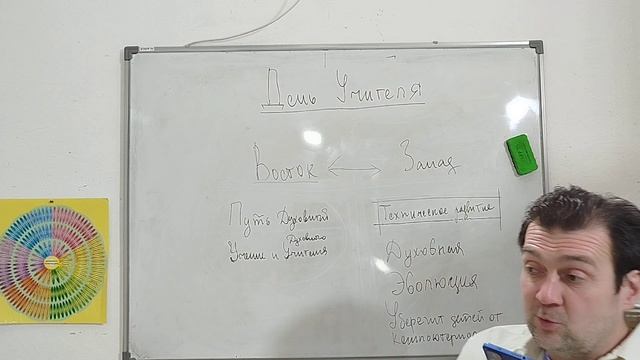 День Учителя
Восток ⟷ Запад
Путь Духовной
Духовного
Учение и Учителя
Техническое развитие
Духовная
Эволюция
Уберечит детей от